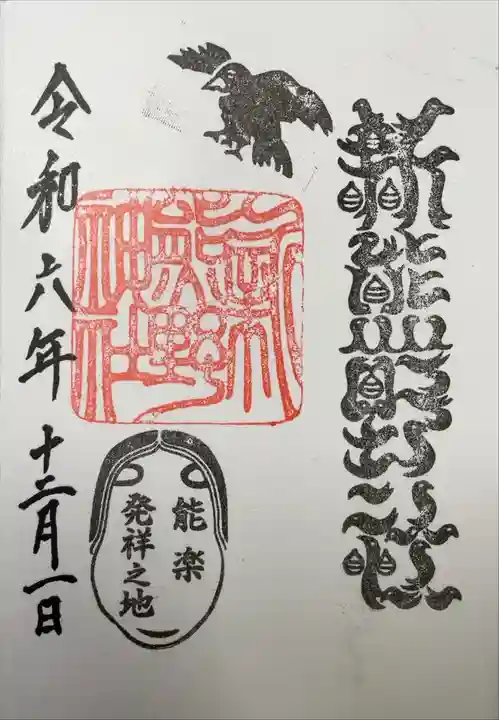 新熊野神社
新熊野神社
能楽
発祥之地
令和六年十二月一日